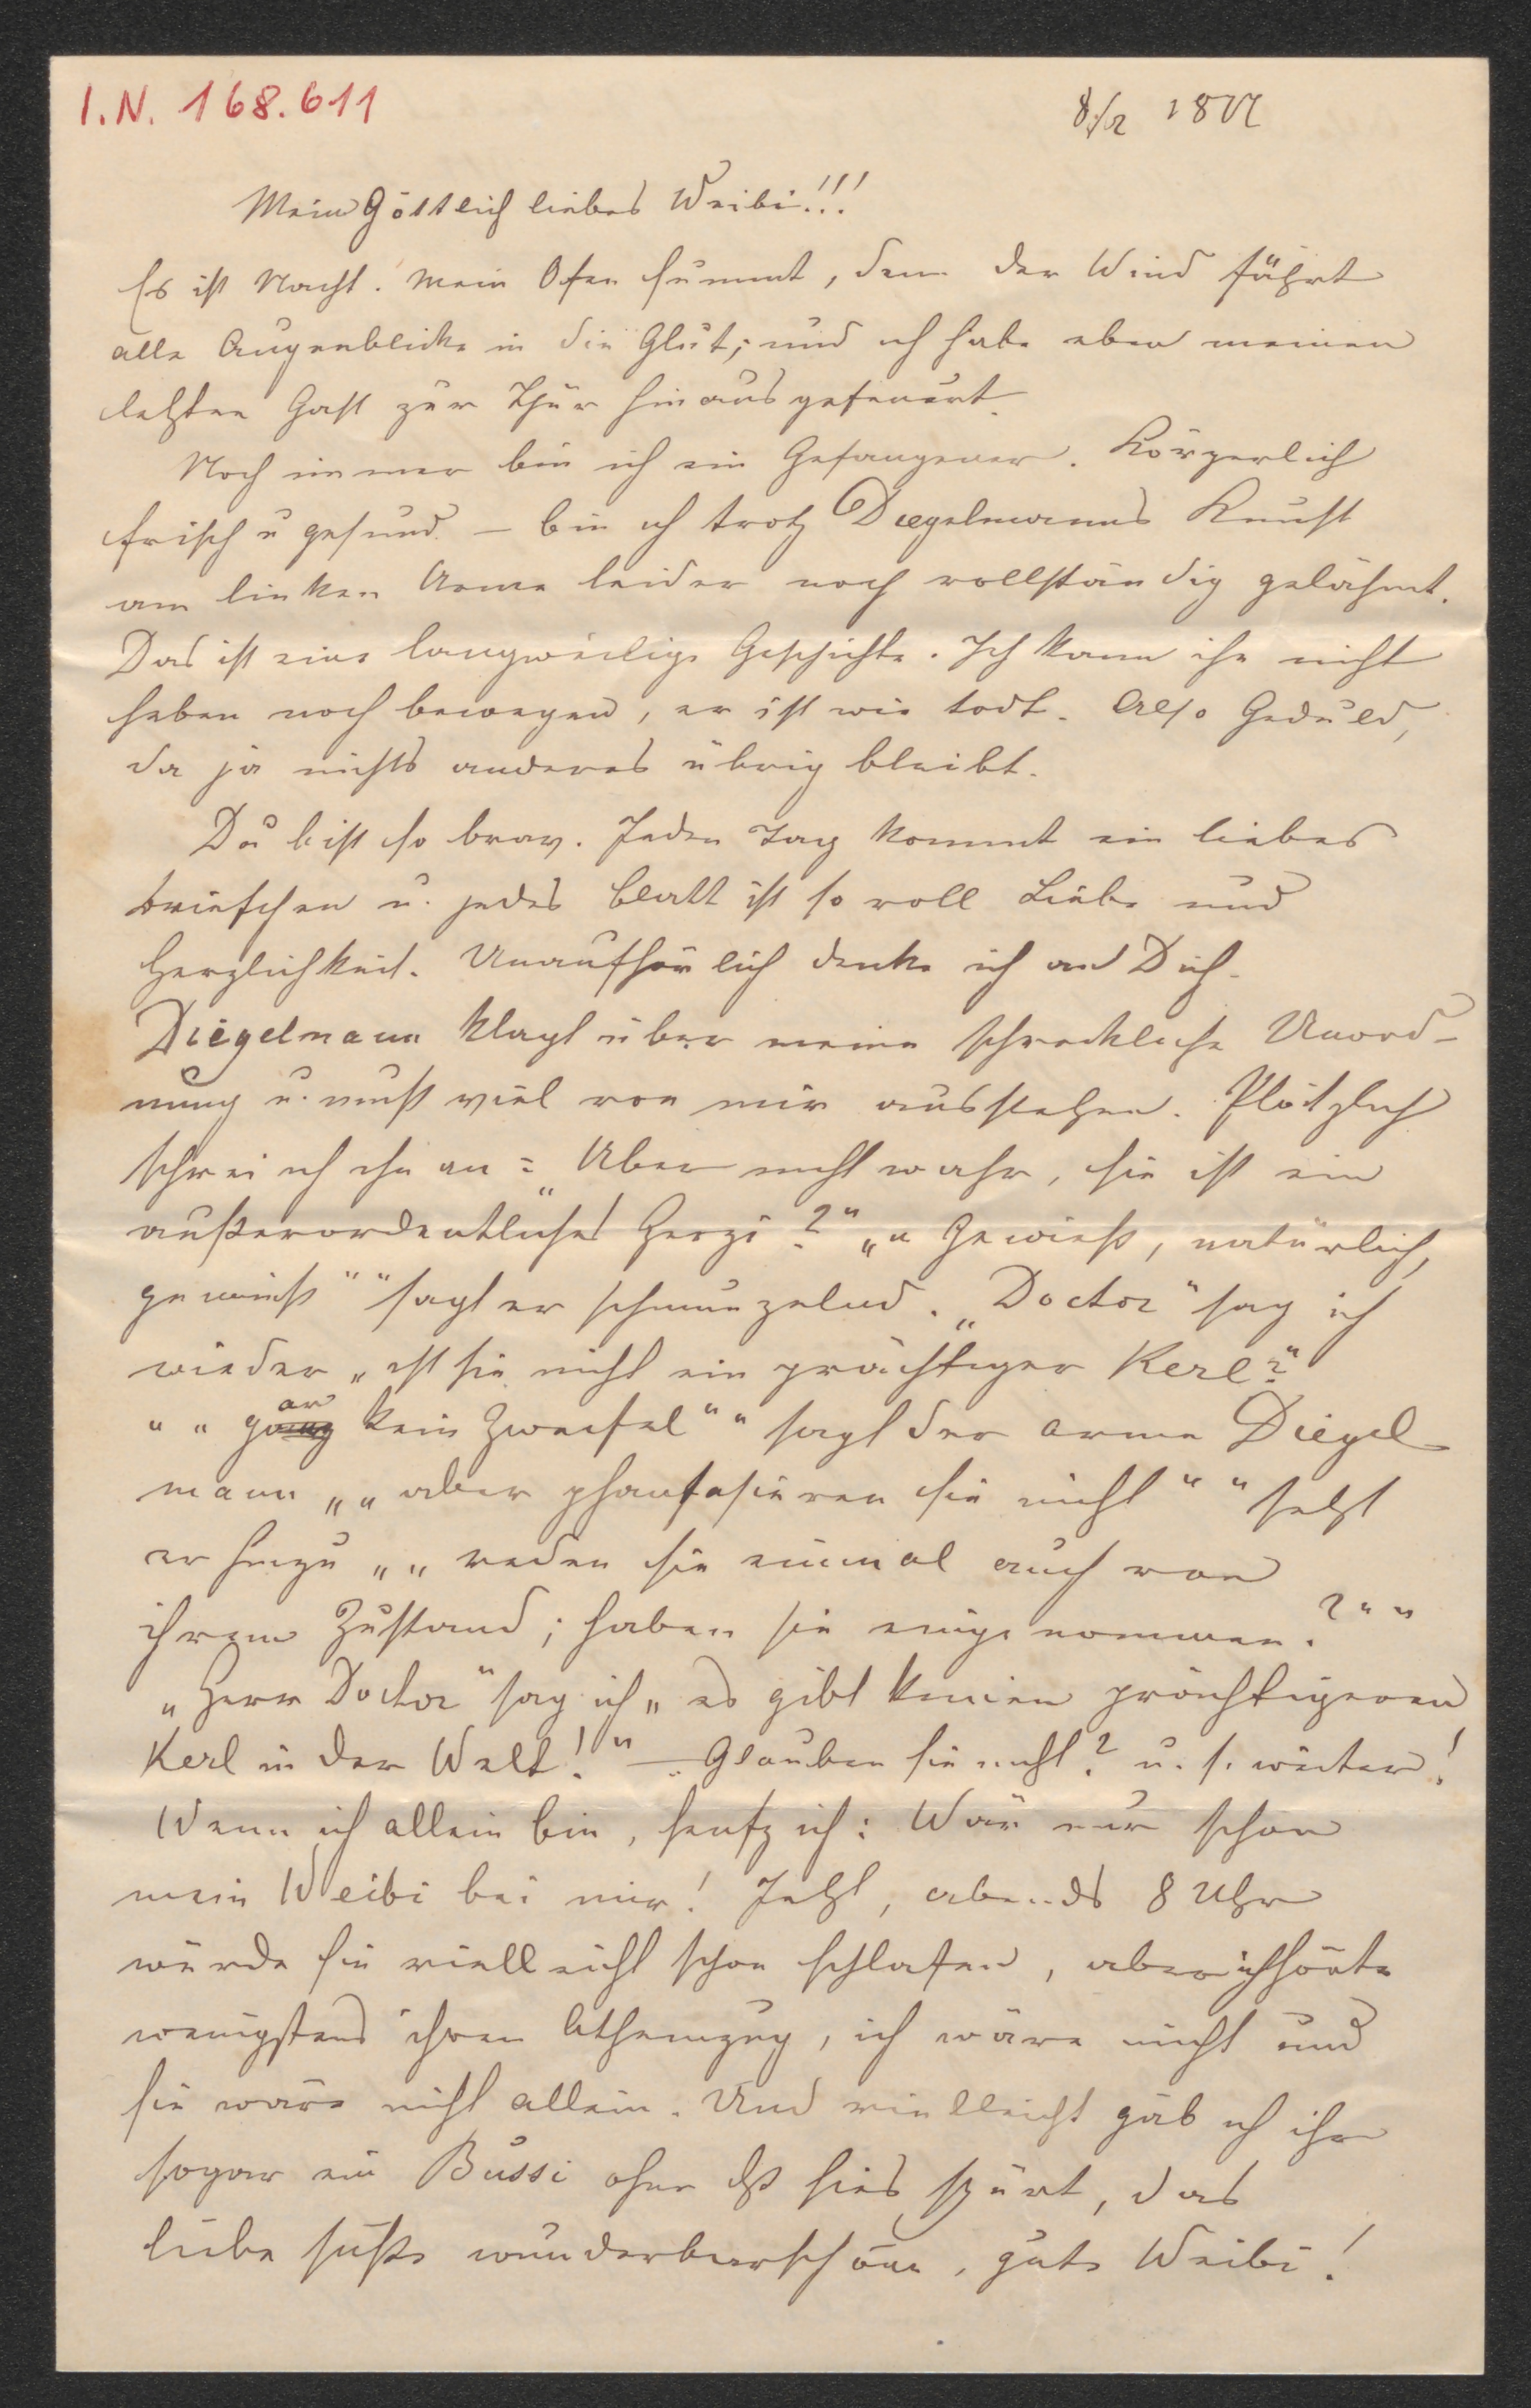 I.N. 168.611
8/2 1877
Mein Göttlich liebes Weibi!!!
Es ist Nacht. Mein Ofen summt, denn der Wind fährt
alle Augenblicke in die Glut; und ich habe eben meinen
letzten Gast zur Thür hinausgefeuert.
Noch immer bin ich ein Gefangener. Körperlich
frisch u gesund – bin ich trotz Diegelmanns Kunst
am linken Arme leider noch vollständig gelähmt.
Das ist eine langweilige Geschichte. Ich kann ihn nicht
heben noch bewegen, er ist wie todt. Also Geduld,
da ja nichts anderes übrig bleibt.
Du bist so brav. Jeden Tag kommt ein liebes
Briefchen u. jedes Blatt ist so voll Liebe und
Herzlichkeit. Unaufhörlich denke ich an Dich.
Diegelmann klagt über meine schreckliche Unord-
nung u. muß viel von mir ausstehen. Plötzlich
schrei ich ihn an: „Aber nicht wahr, sie ist ein
außerordentliches Herzi?" „„Gewieß, natürlich,
gewieß"" sagt er schmunzelnd. „Doctor" sag ich
wieder „ist sie nicht ein prächtiger Kerl?"
„„gar kein Zweifel"" sagt der arme Diegel-
mann „„aber phantasieren sie nicht"" setzt
er hinzu „„reden sie einmal auch von
ihrem Zustand; haben sie eingenommen?""
„Herr Doctor" sag ich „es gibt keinen prächtigeren
Kerl in der Welt!" – Glauben sie nicht? u. s. weiter!
Wenn ich allein bin, seufz ich: Wär nur schon
mein Weibi bei mir! Jetzt, abends 8 Uhr
würde sie vielleicht schon schlafen, aber ich hörte
wenigstens ihren Athemzug, ich wäre nicht und
sie wäre nicht allein. Und vielleicht gäb ich ihr
sogar ein Bussi ohne dß sies spürt, das
liebe süße wunderbarschöne, gute Weibi!